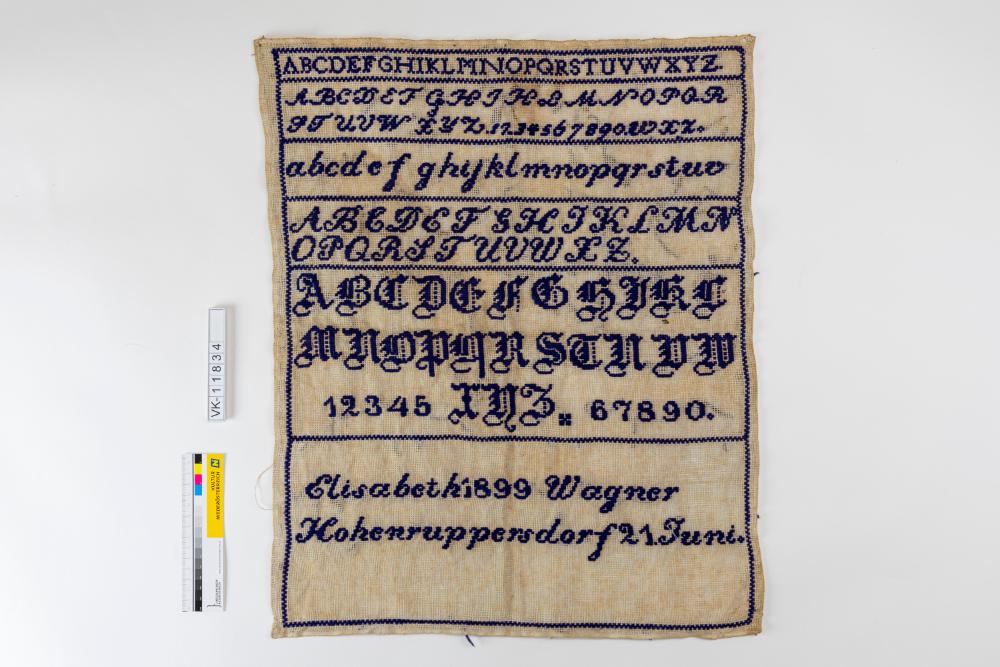 ABCDEFGHIKLMNOPQRSTUVWXYZ
ABCDEF GHIKLMNOPQR
STUVW XYZ.1234567890.WXZ.
abcdef ghijklmnopqrstuv
ABCDEF GHIKLMN
OPQRSTUVWXZ.
ABCDEFGHIKL
MNOPQRSTUVW
12345 XYZ 67890.
Elisabeth 1899 Wagner
Hohenruppersdorf 21.Juni.
VK-11834
KULTUR
NIEDERÖSTERREICH